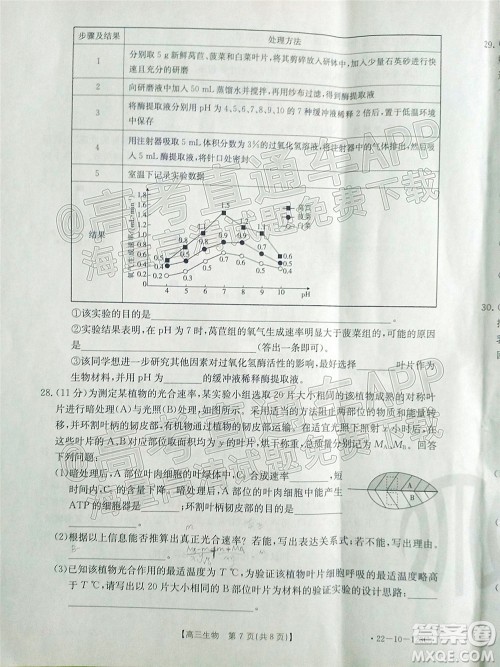 步骤及结果 处理方法
1 分别取 5 g 新鲜莴苣、菠菜和白菜叶片,将其剪碎后放入研钵中,加入少量石英砂进行快速且充分的研磨
2 向研磨液中加入 50 mL 蒸馏水并搅拌,再用纱布过滤,得到酶提取液
3 将酶提取液分别用 pH 为 4、5、6、7、8、9、10 的 7 种缓冲液稀释 2 倍后,置于低温环境中保存
4 用注射器吸取 5 mL 体积分数为 3%的过氧化氢溶液,将注射器中的气体排出,然后吸入 5 mL 酶提取液,将针口处密封
5 室温下记录实验数据
结果
莴苣
菠菜
白菜
4 5 6 7 8 9 10 pH
①该实验的目的是
②实验结果表明,在 pH 为 7 时,莴苣组的氧气生成速率明显大于菠菜组的,可能的原因是
(答出一条即可)。
③该同学想进一步研究其他因素对过氧化氢酶活性的影响,最好选择 叶片作为
生物材料,并用 pH 为 的缓冲液稀释酶提取液。
28. (11 分)为测定某植物的光合速率,某实验小组选取 20 片大小相同的该植物成熟的对称叶
片进行暗处理(A)与光照(B)处理,如图所示。采用适当的方法阻止两部分的物质和能量
转移,环割叶柄韧皮部,使有机物通过韧皮部的运输受阻。在适宜光照下照射 x 小时后,在
这些叶片的 A、B 对应部位截取面积均为 y 的叶片,烘干称重,分别记为 MA、MB。回答
下列问题:
(1)暗处理后,A 部位叶肉细胞的叶绿体中,C₃ 合成速率 ,短
时间内,C₅ 的含量 ,A 部位的叶肉细胞中能产生
ATP 的细胞器是 ,环割叶柄韧皮部的目的是
。
(2)根据以上信息能否推算出真正光合速率?若能,写出表达式;若不能,写出原因。
。
(3)已知该植物光合作用的最适温度为 T ℃,为验证该植物叶片细胞呼吸的最适温度大于
T ℃,请写出以 20 片大小相同的该植物叶片为实验材料的验证实验的设计思路:
。
【高三生物 第 7 页(共 8 页)】
29.
30.
高考直通车APP